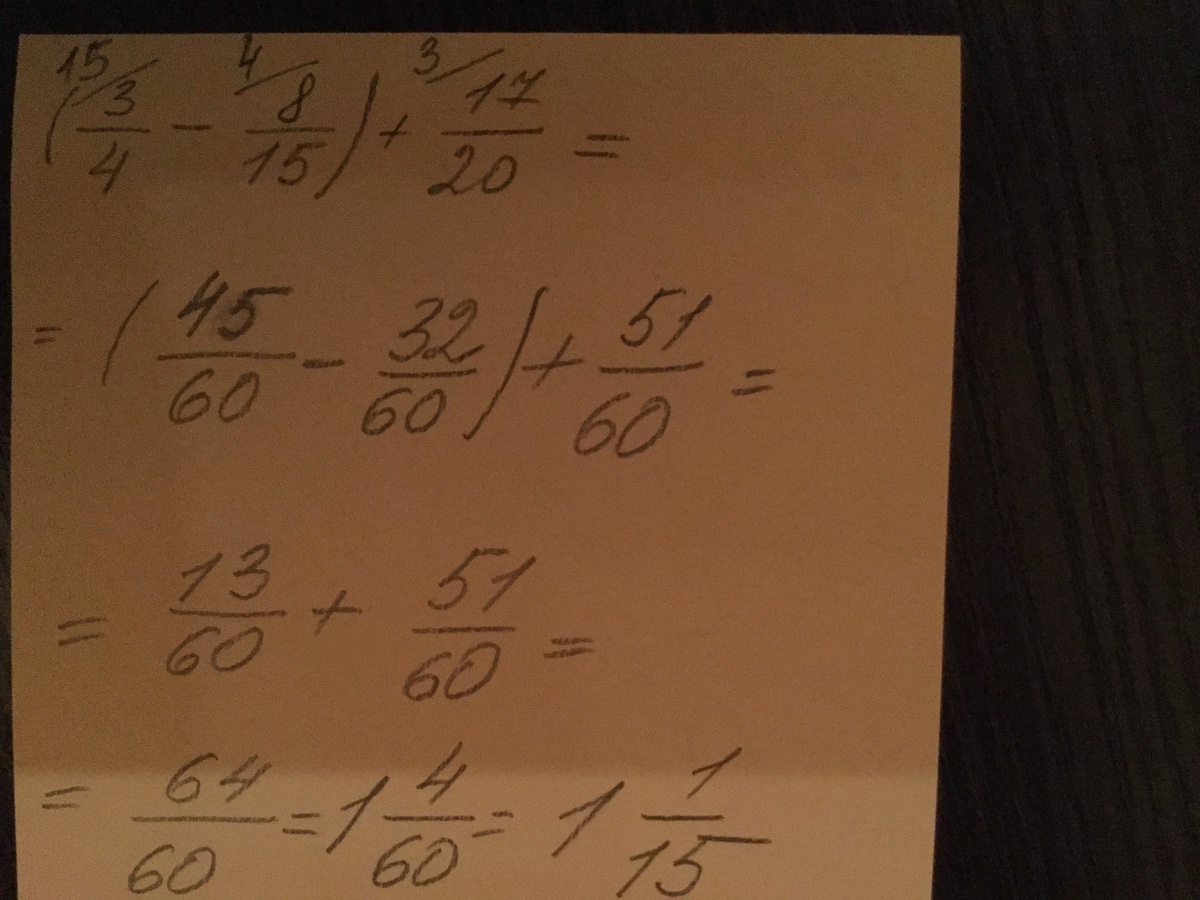 15/ 4/ 3/
(3/4 - 8/15) + 17/20 =
= (45/60 - 32/60) + 51/60 =
= 13/60 + 51/60 =
= 64/60 = 1 4/60 = 1 1/15